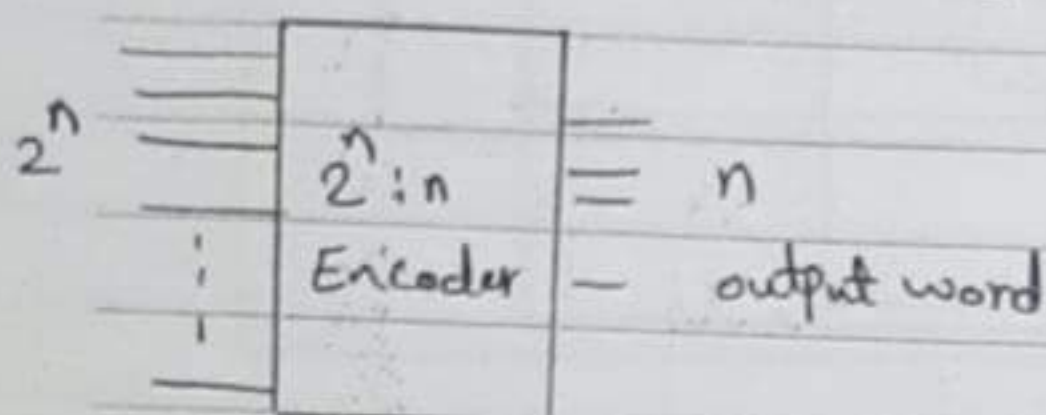 2ⁿ
2ⁿ : n
Encoder
n
output word